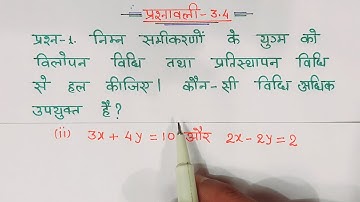 प्रश्नावली-3.4
प्रश्न-1. निम्न समीकरणों के युग्म को
विलोपन विधि तथा प्रतिस्थापन विधि
से हल कीजिए। कौन-सी विधि अधिक
उपयुक्त है?
(ii) 3x+4y=10 और 2x-2y=2